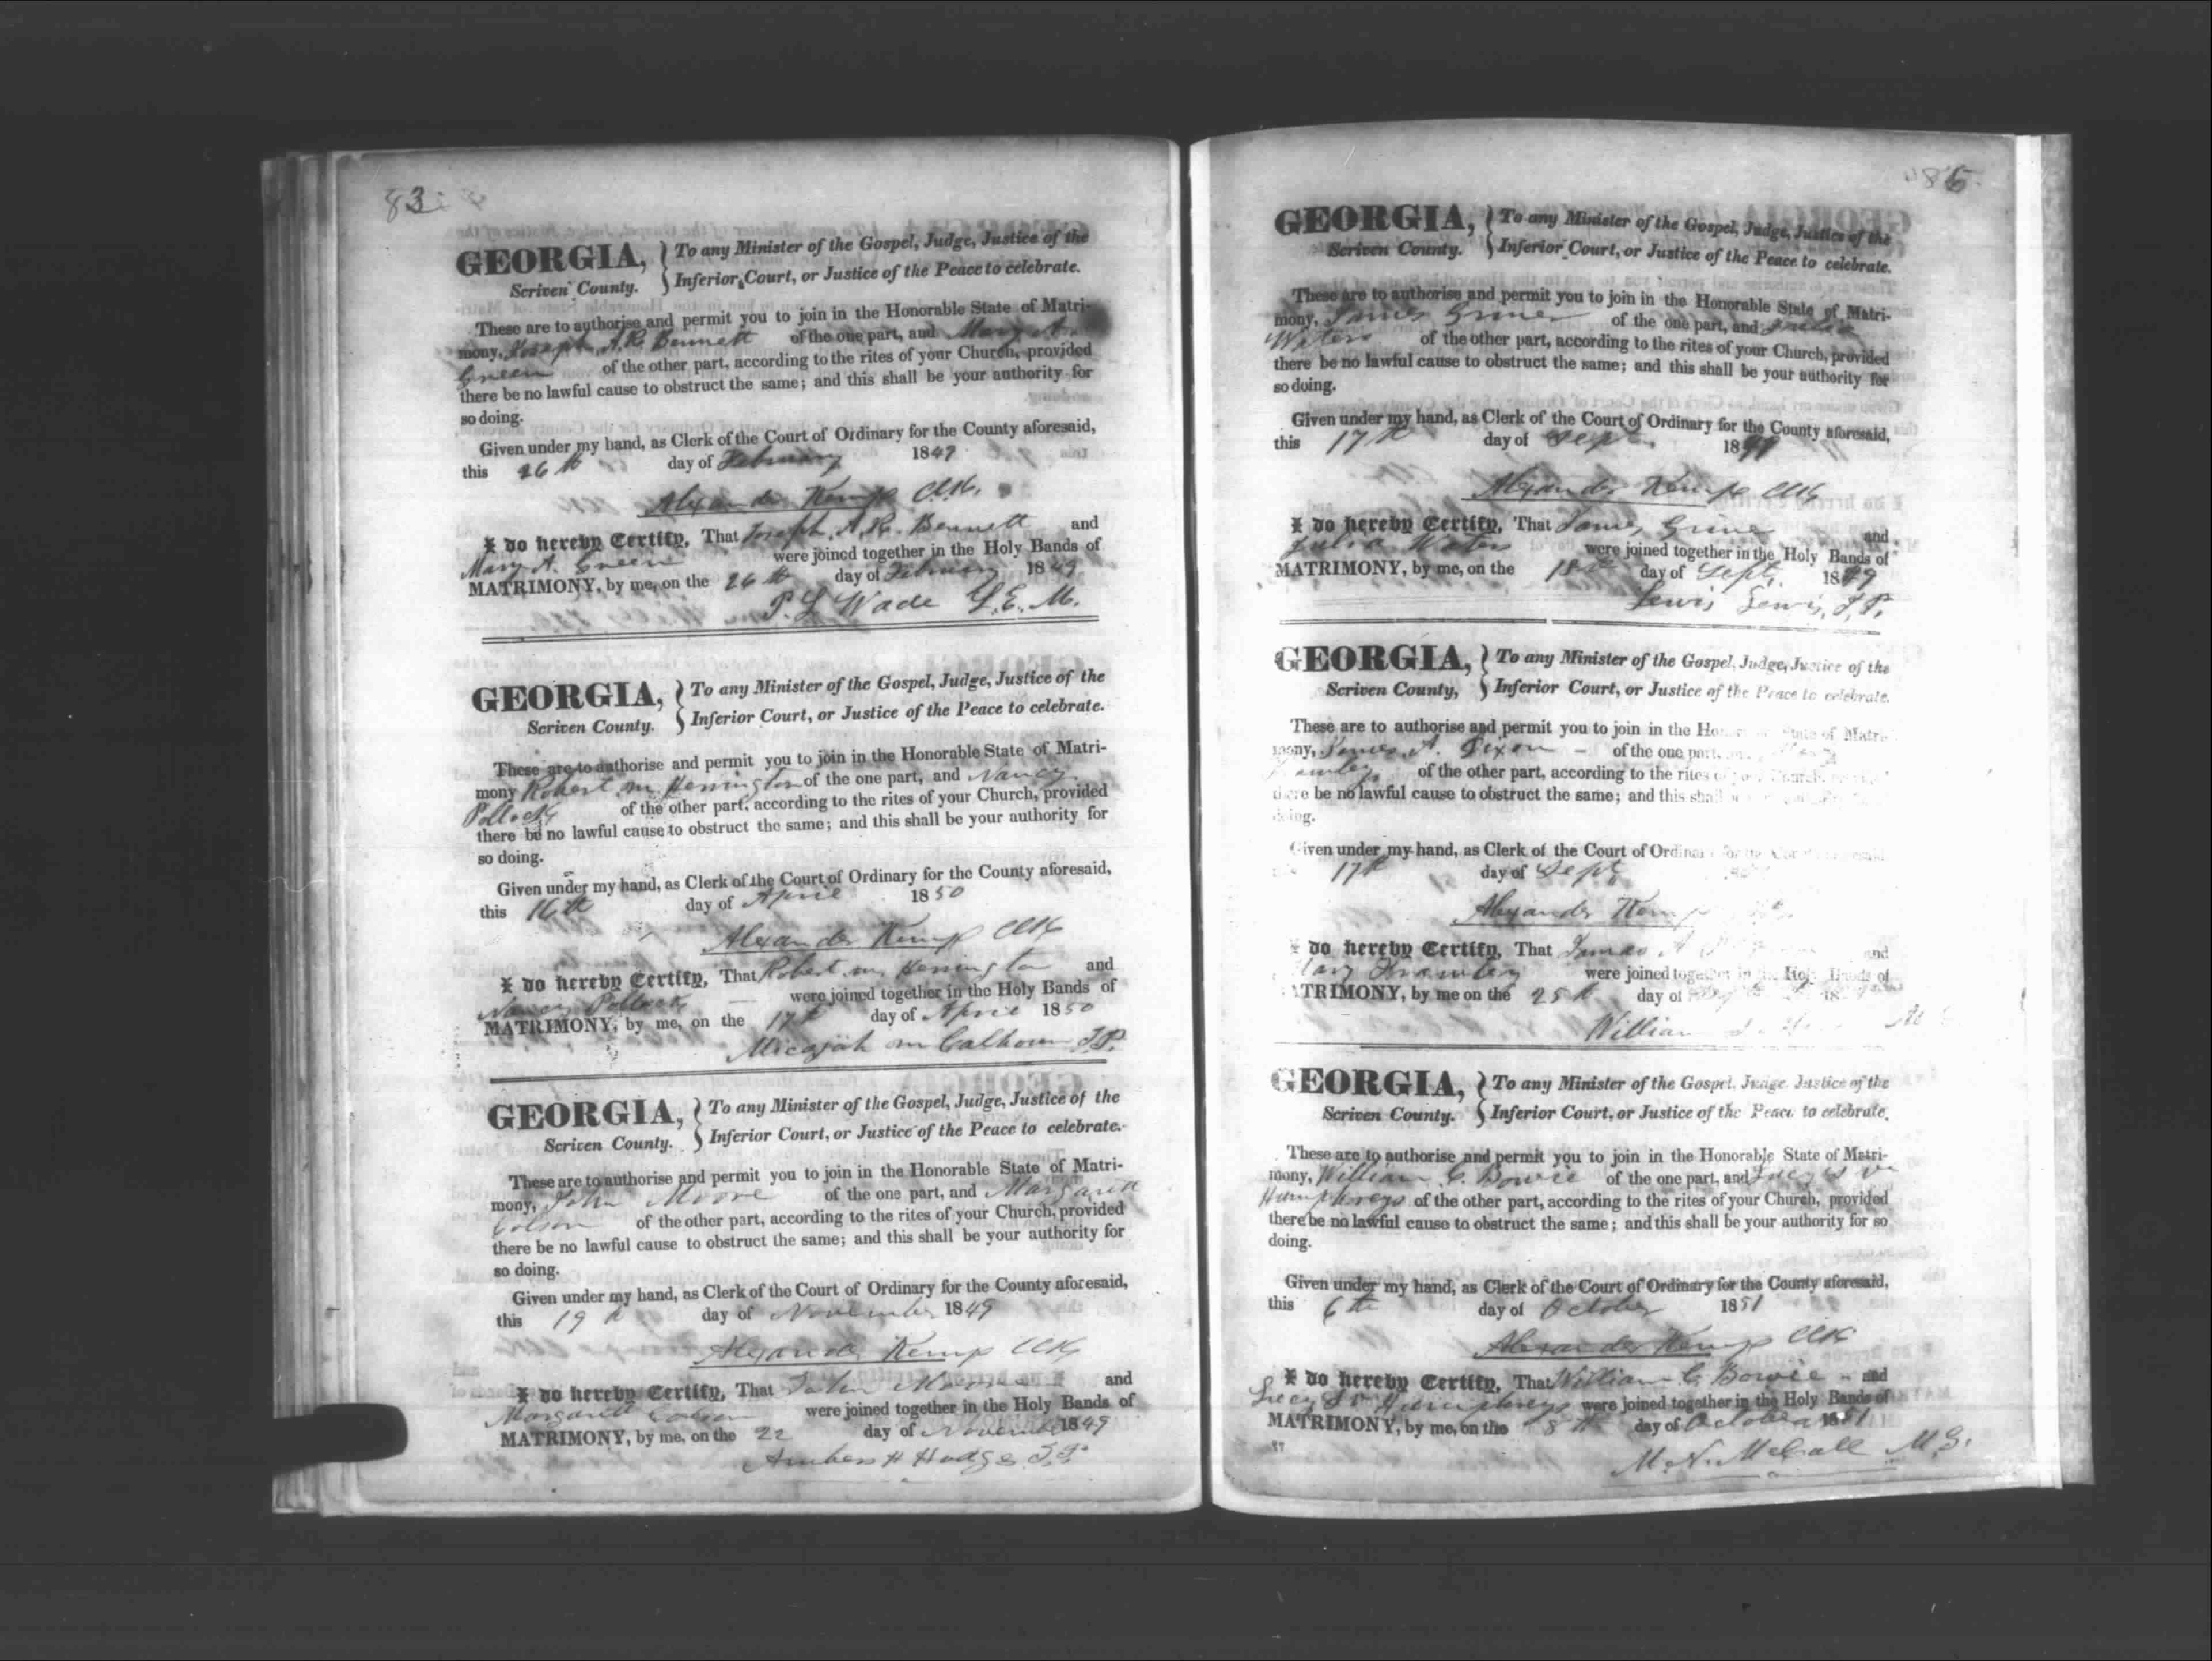 83
GEORGIA, To any Minister of the Gospel, Judge, Justice of the
Scriven County. Inferior Court, or Justice of the Peace to celebrate.
These are to authorise and permit you to join in the Honorable State of Matri-
mony, Joseph A. R. Bennett of the one part, and Mary A.
Green of the other part, according to the rites of your Church, provided
there be no lawful cause to obstruct the same; and this shall be your authority for
so doing.
Given under my hand, as Clerk of the Court of Ordinary for the County aforesaid,
this 26th day of February 1849
Alexander Kemp Clk.
I do hereby Certify, That Joseph A. R. Bennett and
Mary A. Green were joined together in the Holy Bands of
MATRIMONY, by me, on the 26th day of February 1849
P. L. Wade L. E. M.
GEORGIA, To any Minister of the Gospel, Judge, Justice of the
Scriven County. Inferior Court, or Justice of the Peace to celebrate.
These are to authorise and permit you to join in the Honorable State of Matri-
mony Robert m Herrington of the one part, and Nancy
Pollock of the other part, according to the rites of your Church, provided
there be no lawful cause to obstruct the same; and this shall be your authority for
so doing.
Given under my hand, as Clerk of the Court of Ordinary for the County aforesaid,
this 16th day of April 1850
Alexander Kemp Clk
I do hereby Certify, That Robert m Herrington and
Nancy Pollock were joined together in the Holy Bands of
MATRIMONY, by me, on the 17th day of April 1850
Micajah m Calhoun J.P.
GEORGIA, To any Minister of the Gospel, Judge, Justice of the
Scriven County. Inferior Court, or Justice of the Peace to celebrate.
These are to authorise and permit you to join in the Honorable State of Matri-
mony, John Moore of the one part, and Margarett
Colson of the other part, according to the rites of your Church, provided
there be no lawful cause to obstruct the same; and this shall be your authority for
so doing.
Given under my hand, as Clerk of the Court of Ordinary for the County aforesaid,
this 19th day of November 1849
Alexander Kemp Clk
I do hereby Certify, That John Moore and
Margarett Colson were joined together in the Holy Bands of
MATRIMONY, by me, on the 22 day of November 1849
H Hodges J.P.
GEORGIA, To any Minister of the Gospel, Judge, Justice of the
Scriven County. Inferior Court, or Justice of the Peace to celebrate.
These are to authorise and permit you to join in the Honorable State of Matri-
mony, James Griner of the one part, and Julia
Waters of the other part, according to the rites of your Church, provided
there be no lawful cause to obstruct the same; and this shall be your authority for
so doing.
Given under my hand, as Clerk of the Court of Ordinary for the County aforesaid,
this 17th day of Sept. 18
Alexander Kemp Clk
I do hereby Certify, That James Griner and
Julia Waters were joined together in the Holy Bands of
MATRIMONY, by me, on the 18th day of Sept. 1849
Lewis Lewis, J.P.
GEORGIA, To any Minister of the Gospel, Judge, Justice of the
Scriven County, Inferior Court, or Justice of the Peace to celebrate.
These are to authorise and permit you to join in the State of Matri-
mony, James A. Dixon of the one part,
of the other part, according to the rites
there be no lawful cause to obstruct the same; and this shall
doing.
Given under my hand, as Clerk of the Court of Ordinary
17th day of Sept
Alexander Kemp
I do hereby Certify, That James A and
Mary were joined together in the Holy Bands of
MATRIMONY, by me on the 25th day of 18
William
GEORGIA, To any Minister of the Gospel, Judge, Justice of the
Scriven County. Inferior Court, or Justice of the Peace to celebrate.
These are to authorise and permit you to join in the Honorable State of Matri-
mony, William C. Bowie of the one part, and
Humphreys of the other part, according to the rites of your Church, provided
there be no lawful cause to obstruct the same; and this shall be your authority for so
doing.
Given under my hand, as Clerk of the Court of Ordinary for the County aforesaid,
this 6th day of October 1851
Alexander Kemp Clk
I do hereby Certify, That William C. Bowie and
Humphreys were joined together in the Holy Bands of
MATRIMONY, by me, on the 8th day of October 1851
M. N. McCall M. G.